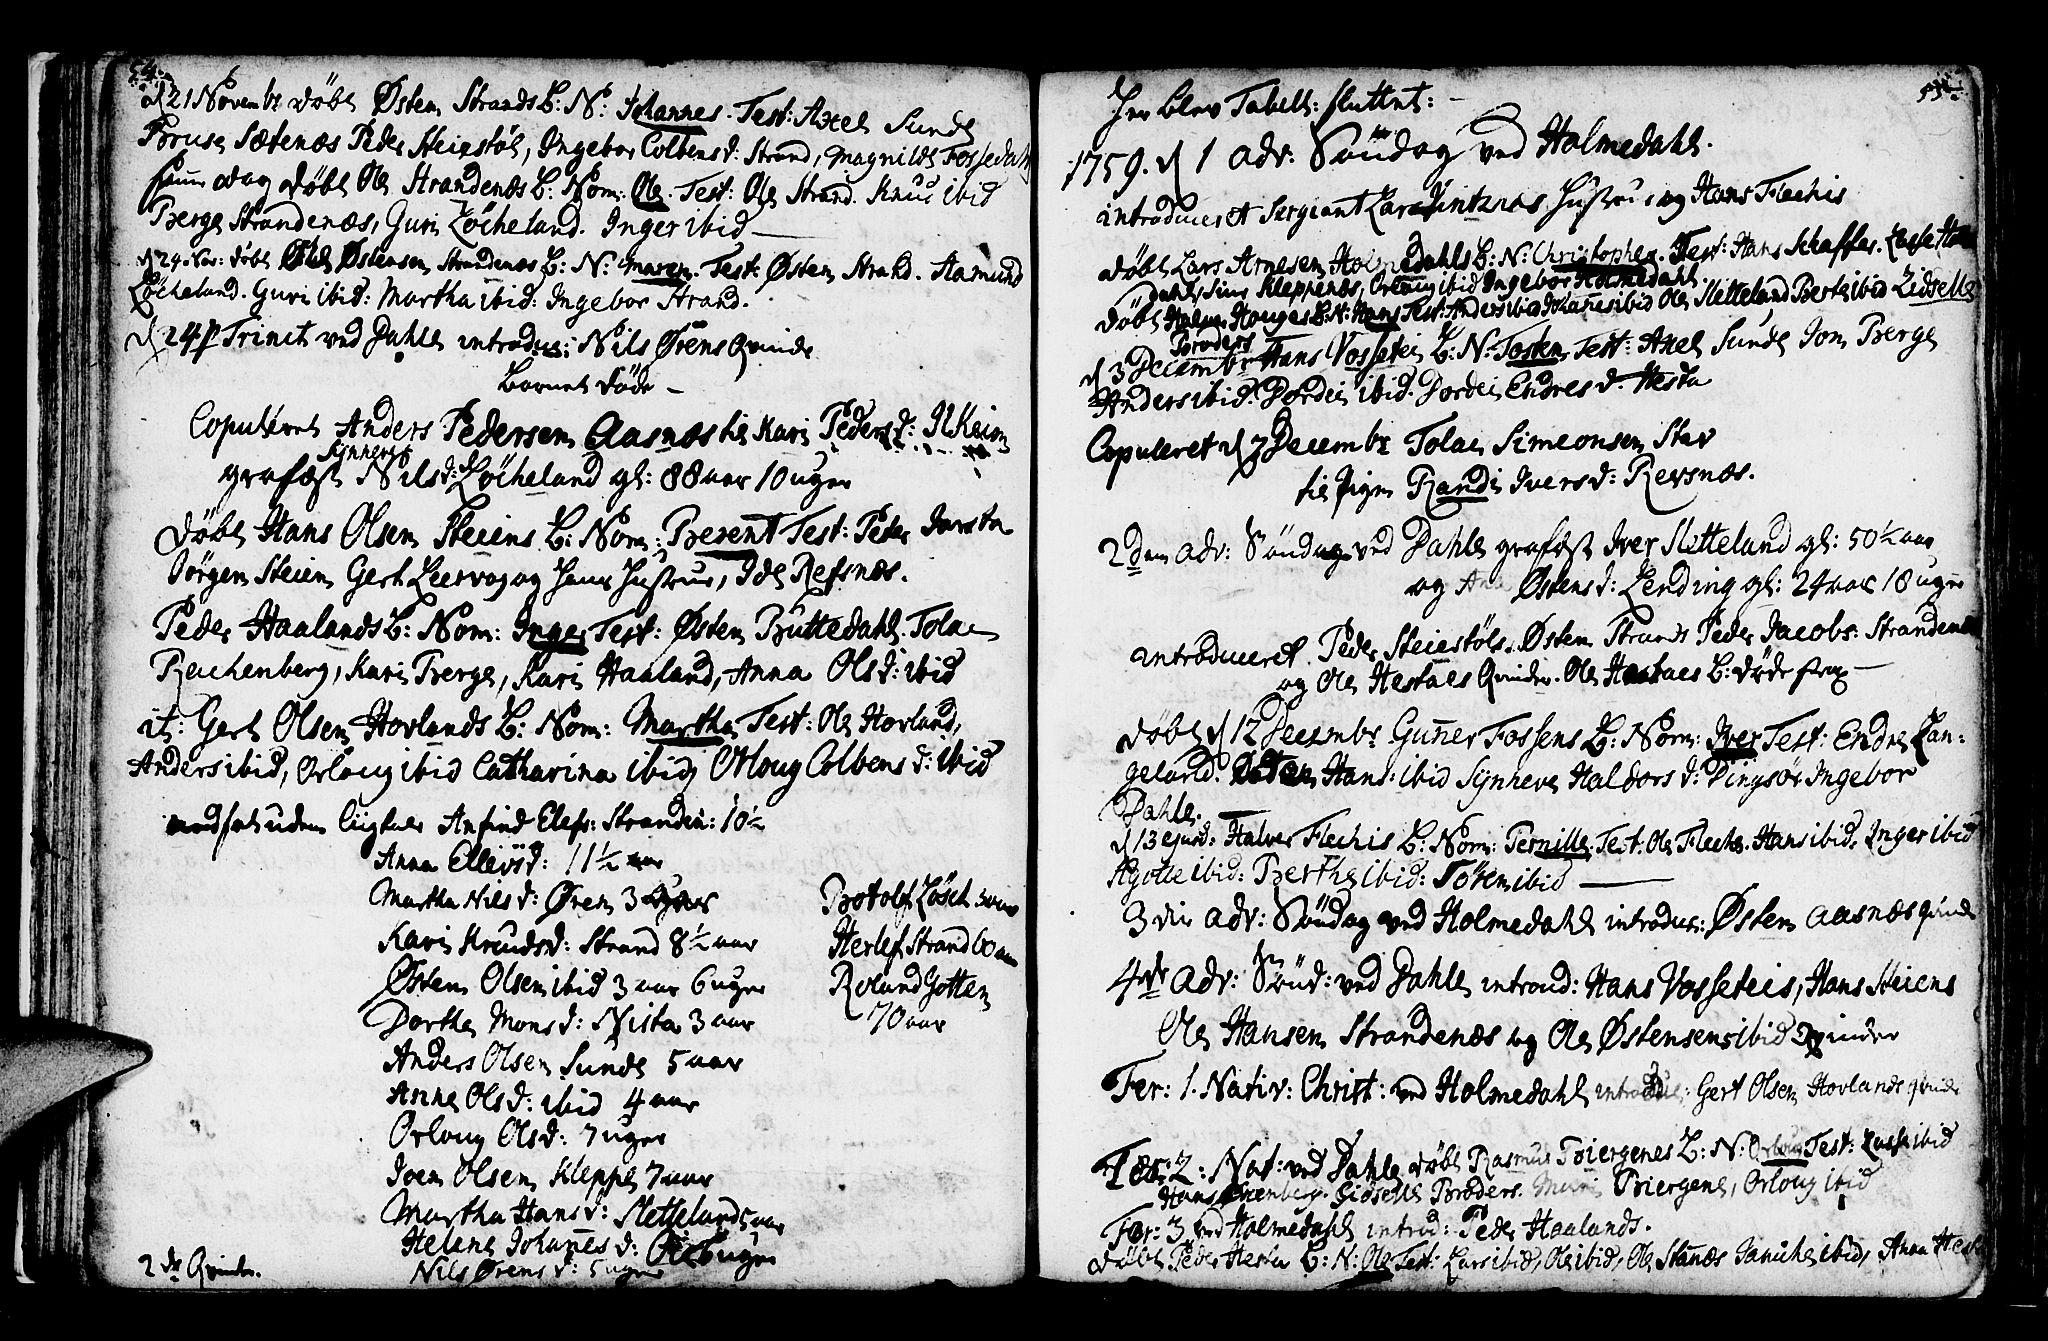 54.
d 21 Novembr döbt Østen Strands B: N: Johannes. Test: Axel Sunde
Bruse Sætenæs Peder Steiestöl, Ingebor Colbens d: Strand, Magnilde Fossedahl
samme dag döbt Ole Strandenæs B: Nom: Ole. Test: Ole Strand. Knud ibid
Berge Strandenæs, Guri Löcheland. Inger ibid
d 24 Nov: döbt Ole Østensen Strandenæs B: N: Maren. Test: Østen Strand. Aamund
Löcheland. Guri ibid: Martha ibid: Ingebor Strand.
d 24 p Trinit ved Dahle introduc: Nils Ørens Qvinde
Barnet döde
Copuleret Anders Pedersen Aasnæs til Kari Peders d:
Synneve
grafæst Nils d: Löcheland gl: 88 aar 10 uger
Döbt Hans Olsen Steiens B: Nom: Berent Test: Peder Jarsta
Jörgen Steien Gert Leervog og Hans Hustrue, Ide Refsnæs.
Peder Haalands B: Nom: Inger Test: Østen Buttedahl. Tolac
Reichenberg, Kari Berge, Kari Haaland, Anna Ols d: ibid
it: Gert Olsen Hovlands B: Nom: Martha Test: Ole Hovland,
Anders ibid, Orloug ibid Catharina ibid, Orloug Colbens d: ibid
nedsat uden liigtaler Anfind Elefs: Stranden: 10½
Anna Ellevs d: 11½ aar
Martha Nils d: Ören 3 aar
Kari Knuds d: Strand 8½ aar
Østen Olsen ibid 3 aar 6 uger
Dorthe Mons d: Nista 3 aar
Anders Olsen Sunde 5 aar
Anne Ols d: ibid 4 aar
Orloug Ols d: 7 uger
Joen Olsen Kleppe 7 aar
Martha Hans d: Slettelund 5 aar
Helene Johanes d: uger
Nils Ørens d: 5 uger
Botolf Lösch aar
Herlef Strand 60 aar
Roland Gotten
70 aar
2 de Qvinder.
55.
Her blev Tabell: sluttet:
1759. d 1 Adv: Söndag ved Holmedahl.
introduceret Sergiant Lars Hustrue og Hans Flechis
döbt Lars Arnesen Holmedahls B: N: Christopher. Test: Hans Schaffer. Lasse Holme
dahl, Siur Kleppenæs, Orloug ibid Ingebor Holmedahl.
döbt Hauges B: N: Hans Test: Anders ibid Johanes ibid Ole Slitteland Berte ibid Zidselle
Broders
d 3 Decembr Hans Vossetei B: N: Tosten Test: Axel Sunde Jon Berge
Anders ibid. Dordei ibid. Dordei Endres d. Hesta
Copuleret d 7 Decembr Tolac Simeonsen Stav
til Pigen Randi Ivers d: Revsnæs.
2den Adv: Söndag ved Dahle grafæst Iver Slitteland gl: 50½ aar
og Østens d: Lending gl: 24 aar 18 uger
introduceret Peder Steiestöls. Østen Strands Peder Jacobs: Strandenæs
og Ole Hestaes Qvinder. Ole Hestaes B: döde strax
döbt d 12 Decembr Guñer Fossens B: Nom: Iver Test: Endre Lan-
geland. Hans: ibid Synneve Haldors d: Dingsör Ingebor
Dahle.
d 13 ejusd: Halver Flechis B: Nom: Pernille. Test: Ole Fleche. Hans ibid. Inger ibid
Agotte ibid: Berthe ibid: Tören ibid
3die Adv: Söndag ved Holmedahl introduc: Østen Aasnæs qvinde
4de Adv: Sönd: ved Dahle introd: Hans Vosseteis, Hans Steiens
Ole Hansen Strandenæs og Ole Østensens ibid Qvinder
Fer: 1. Nativ: Christ: ved Holmedahl introduc: Gert Olsen Hovlands qvinde
Fer: 2: Nat: ved Dahle döbt Rasmus Biergenes B: N: Orloug Test: Lasse ibid
Hans Gidselle Broders. Biergene, Orloug ibid
Fer: 3. ved Holmedahl introd: Peder Haalands.
Döbt Peder Hesta B: N: Ole Test: Lars ibid, Ole ibid, Ole Stanæs Janiche ibid, Anna Hesta